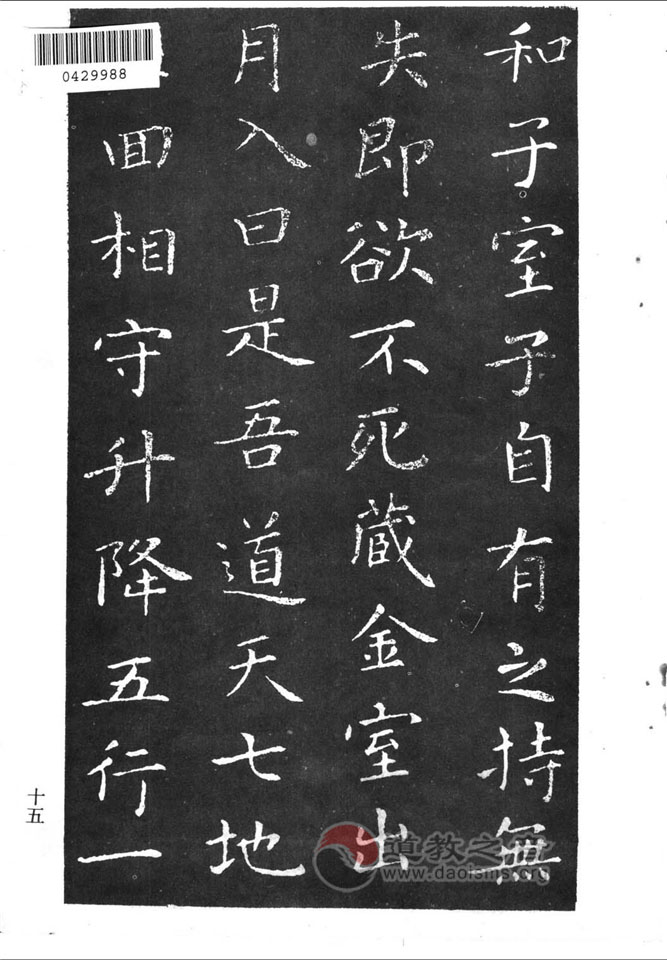 和子室子自有之持無
失即欲不死藏金室出
月入日是吾道天七地
回相守升降五行一
0429988
十五
道教之音
www.daoisms.org